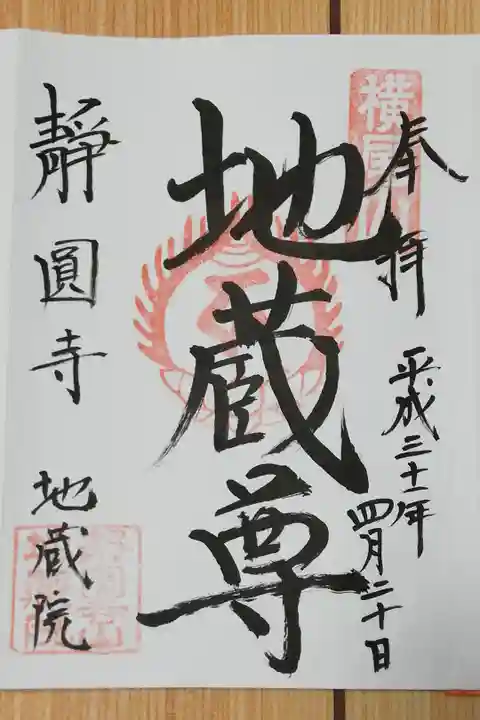 奉拝
平成三十一年
四月二十日
地蔵尊
靜圓寺 地蔵院